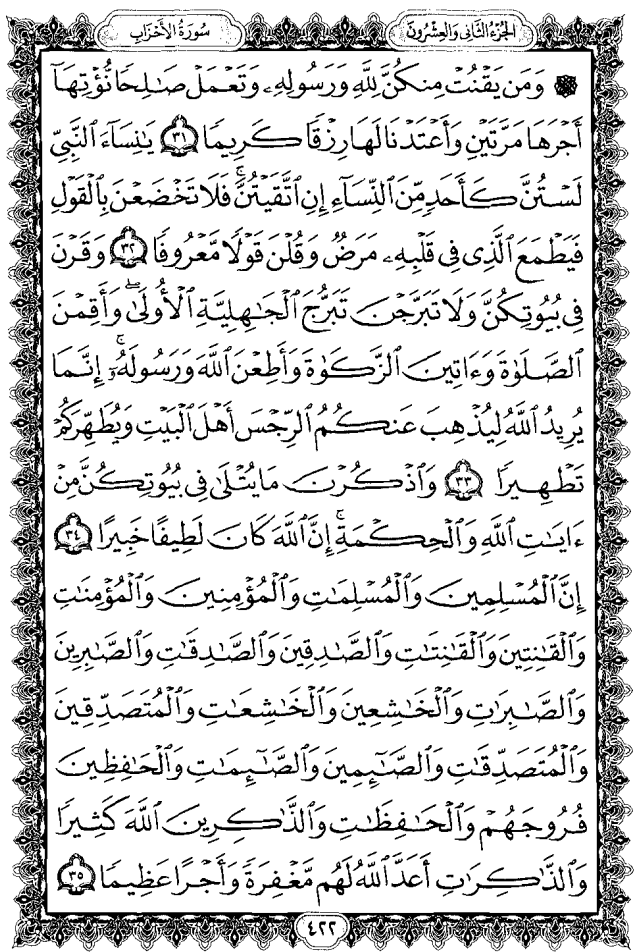 الجزء الثاني والعشرون
سورة الأحزاب
۞ وَمَن يَقْنُتْ مِنكُنَّ لِلَّهِ وَرَسُولِهِۦ وَتَعْمَلْ صَٰلِحًا نُّؤْتِهَآ
أَجْرَهَا مَرَّتَيْنِ وَأَعْتَدْنَا لَهَا رِزْقًا كَرِيمًا ٣١ يَٰنِسَآءَ ٱلنَّبِىِّ
لَسْتُنَّ كَأَحَدٍ مِّنَ ٱلنِّسَآءِ إِنِ ٱتَّقَيْتُنَّ ۚ فَلَا تَخْضَعْنَ بِٱلْقَوْلِ
فَيَطْمَعَ ٱلَّذِى فِى قَلْبِهِۦ مَرَضٌ وَقُلْنَ قَوْلًا مَّعْرُوفًا ٣٢ وَقَرْنَ
فِى بُيُوتِكُنَّ وَلَا تَبَرَّجْنَ تَبَرُّجَ ٱلْجَٰهِلِيَّةِ ٱلْأُولَىٰ ۖ وَأَقِمْنَ
ٱلصَّلَوٰةَ وَءَاتِينَ ٱلزَّكَوٰةَ وَأَطِعْنَ ٱللَّهَ وَرَسُولَهُۥٓ ۚ إِنَّمَا
يُرِيدُ ٱللَّهُ لِيُذْهِبَ عَنكُمُ ٱلرِّجْسَ أَهْلَ ٱلْبَيْتِ وَيُطَهِّرَكُمْ
تَطْهِيرًا ٣٣ وَٱذْكُرْنَ مَا يُتْلَىٰ فِى بُيُوتِكُنَّ مِنْ
ءَايَٰتِ ٱللَّهِ وَٱلْحِكْمَةِ ۚ إِنَّ ٱللَّهَ كَانَ لَطِيفًا خَبِيرًا ٣٤
إِنَّ ٱلْمُسْلِمِينَ وَٱلْمُسْلِمَٰتِ وَٱلْمُؤْمِنِينَ وَٱلْمُؤْمِنَٰتِ
وَٱلْقَٰنِتِينَ وَٱلْقَٰنِتَٰتِ وَٱلصَّٰدِقِينَ وَٱلصَّٰدِقَٰتِ وَٱلصَّٰبِرِينَ
وَٱلصَّٰبِرَٰتِ وَٱلْخَٰشِعِينَ وَٱلْخَٰشِعَٰتِ وَٱلْمُتَصَدِّقِينَ
وَٱلْمُتَصَدِّقَٰتِ وَٱلصَّٰٓئِمِينَ وَٱلصَّٰٓئِمَٰتِ وَٱلْحَٰفِظِينَ
فُرُوجَهُمْ وَٱلْحَٰفِظَٰتِ وَٱلذَّٰكِرِينَ ٱللَّهَ كَثِيرًا
وَٱلذَّٰكِرَٰتِ أَعَدَّ ٱللَّهُ لَهُم مَّغْفِرَةً وَأَجْرًا عَظِيمًا ٣٥
٤٢٢